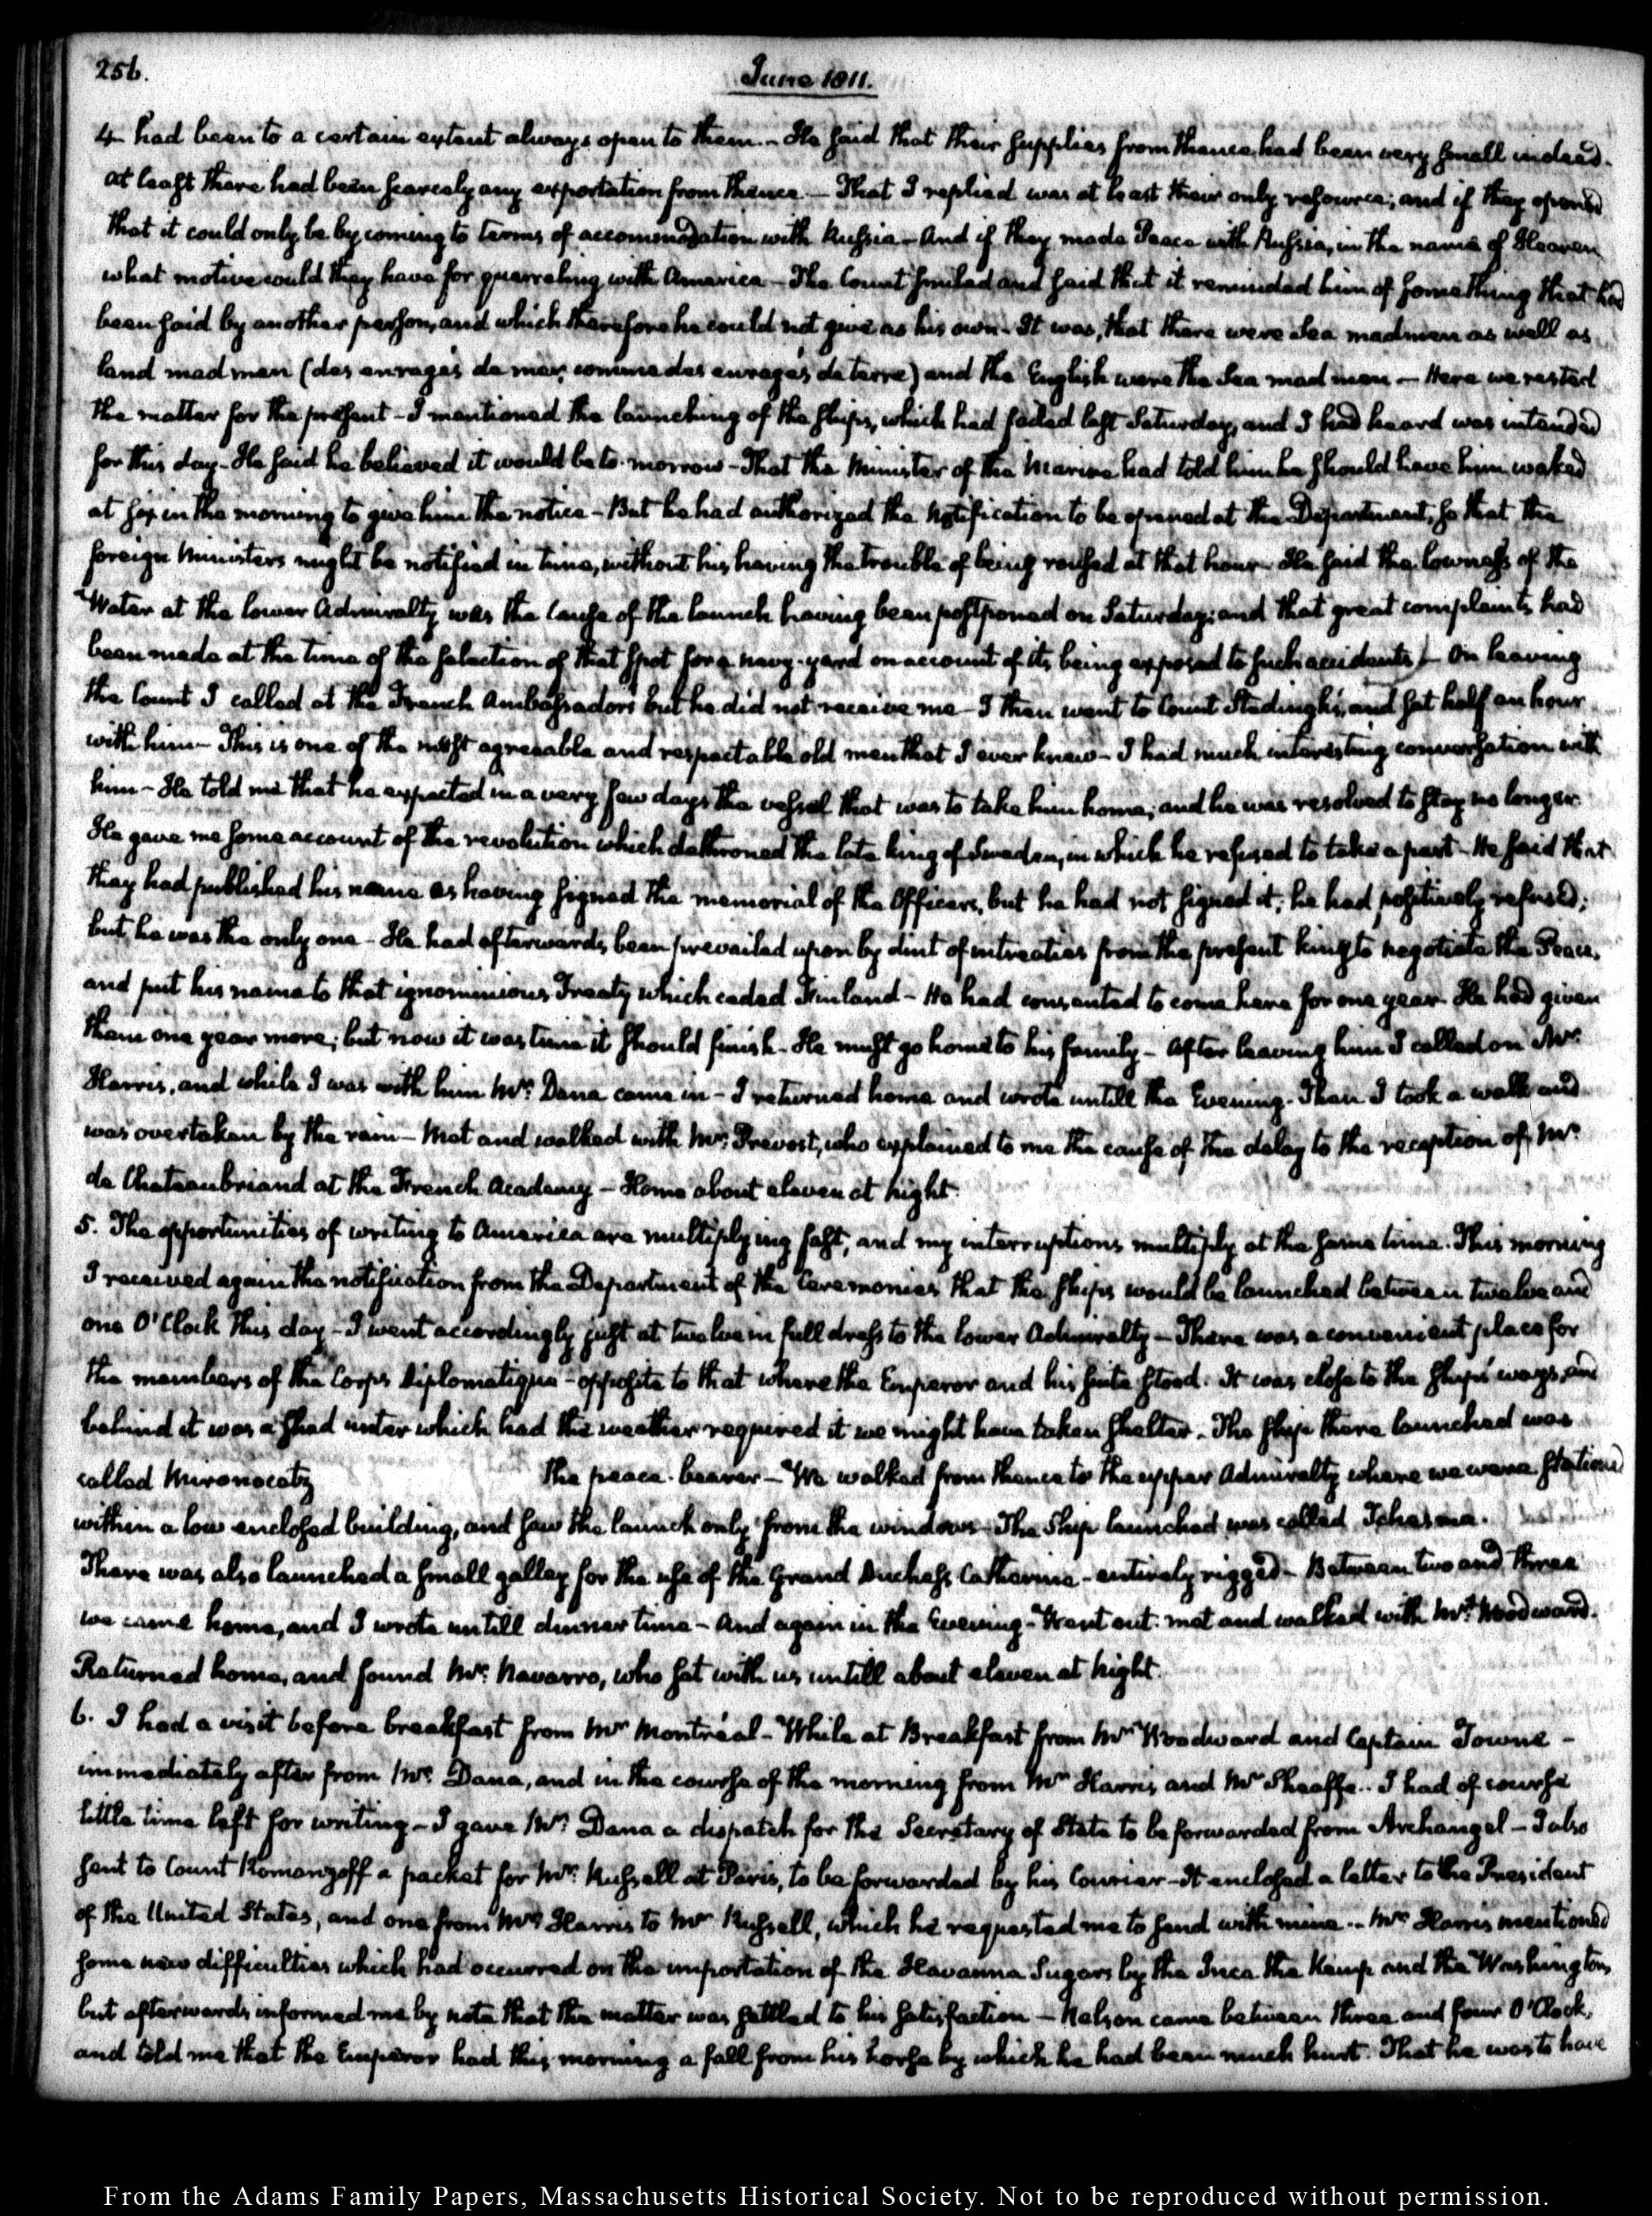 256.
June 1811.
4 had been to a certain extent always open to them. - He said that their supplies from thence had been very small indeed.
at least there had been scarcely any exportation from thence - That I replied was at least their only resource; and if they opened
that it could only be by coming to terms of accommodation with Russia - And if they made Peace with Russia, in the name of Heaven
what motive could they have for quarreling with America - The Count smiled and said that it reminded him of something that had
been said by another person, and which therefore he could not give as his own - It was, that there were Sea madmen as well as
land mad men (des enragés de mer, comme des enragés de terre) and the English were the Sea mad men - Here we rested
the matter for the present - I mentioned the launching of the ships, which had failed last Saturday, and I had heard was intended
for this day - He said he believed it would be to-morrow - That the Minister of the Marine had told him he should have him waked
at six in the morning to give him the notice - But he had authorized the Notification to be opened at the Department, so that the
foreign Ministers might be notified in time, without his having the trouble of being roused at that hour - He said the lowness of the
Water at the lower Admiralty was the cause of the launch having been postponed on Saturday; and that great complaints had
been made at the time of the selection of that spot for a navy-yard on account of its being exposed to such accidents - On leaving
the Count I called at the French Ambassador's but he did not receive me - I then went to Count Stedingk's, and sat half an hour
with him - This is one of the most agreeable and respectable old men that I ever knew - I had much interesting conversation with
him - He told me that he expected in a very few days the vessel that was to take him home; and he was resolved to stay no longer.
He gave me some account of the revolution which dethroned the late king of Sweden, in which he refused to take a part - He said that
they had published his name as having signed the memorial of the Officers, but he had not signed it; he had positively refused;
but he was the only one - He had afterwards been prevailed upon by dint of intreaties from the present king to negotiate the Peace,
and put his name to that ignominious Treaty which ceded Finland - He had consented to come here for one year - He had given
them one year more; but now it was time it should finish - He must go home to his family - After leaving him I called on Mr.
Harris, and while I was with him Mr. Dana came in - I returned home and wrote untill the Evening - Then I took a walk and
was overtaken by the rain - Met and walked with Mr. Prevost, who explained to me the cause of the delay to the reception of Mr.
de Chateaubriand at the French Academy - Home about eleven at night.
5. The opportunities of writing to America are multiplying fast, and my interruptions multiply at the same time. This morning
I received again the notification from the Department of the Ceremonies that the ships would be launched between twelve and
one O'Clock this day - I went accordingly just at twelve in full dress to the lower Admiralty - There was a convenient place for
the members of the Corps Diplomatique - opposite to that where the Emperor and his suite stood. It was close to the ships' ways, and
behind it was a shed unter which had the weather required it we might have taken shelter - The ship there launched was
called Mironocetz the peace-bearer - We walked from thence to the upper Admiralty where we were stationed
within a low enclosed building, and saw the launch only from the windows - The Ship launched was called Tchesma.
There was also launched a small galley for the use of the Grand Duchess Catherine - entirely rigged - Between two and three
we came home, and I wrote untill dinner time - And again in the Evening - Went out. met and walked with Mr. Woodward.
Returned home, and found Mr. Navarro, who sat with us untill about eleven at night.
6. I had a visit before breakfast from Mr. Montréal - While at Breakfast from Mr. Woodward and Captain Towne -
immediately after from Mr. Dana, and in the course of the morning from Mr. Harris and Mr. Sheaffe.. I had of course
little time left for writing - I gave Mr. Dana a dispatch for the Secretary of State to be forwarded from Archangel - I also
sent to Count Romanzoff a packet for Mr. Russell at Paris, to be forwarded by his Courier - It enclosed a letter to the President
of the United States, and one from Mr. Harris to Mr. Russell, which he requested me to send with mine.. Mr. Harris mentioned
some new difficulties which had occurred on the importation of the Havanna Sugars by the Inca the Kemp and the Washington,
but afterwards informed me by note that the matter was settled to his satisfaction - Nelson came between three and four O'Clock,
and told me that the Emperor had this morning a fall from his horse by which he had been much hurt. That he was to have
From the Adams Family Papers, Massachusetts Historical Society. Not to be reproduced without permission.